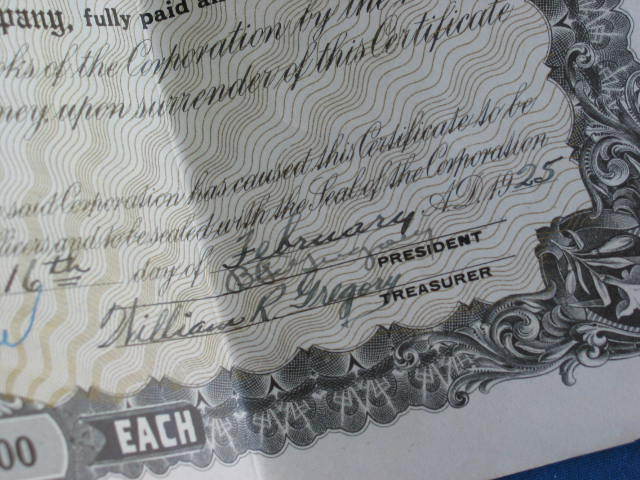 mpany, fully paid an
oks of the Corporation by the
ney, upon surrender of this Certificate
said Corporation has caused this Certificate to be
fficers and to be sealed with the Seal of the Corporation
16th day of February A.D. 1925
PRESIDENT
William R Gregory TREASURER
00 EACH